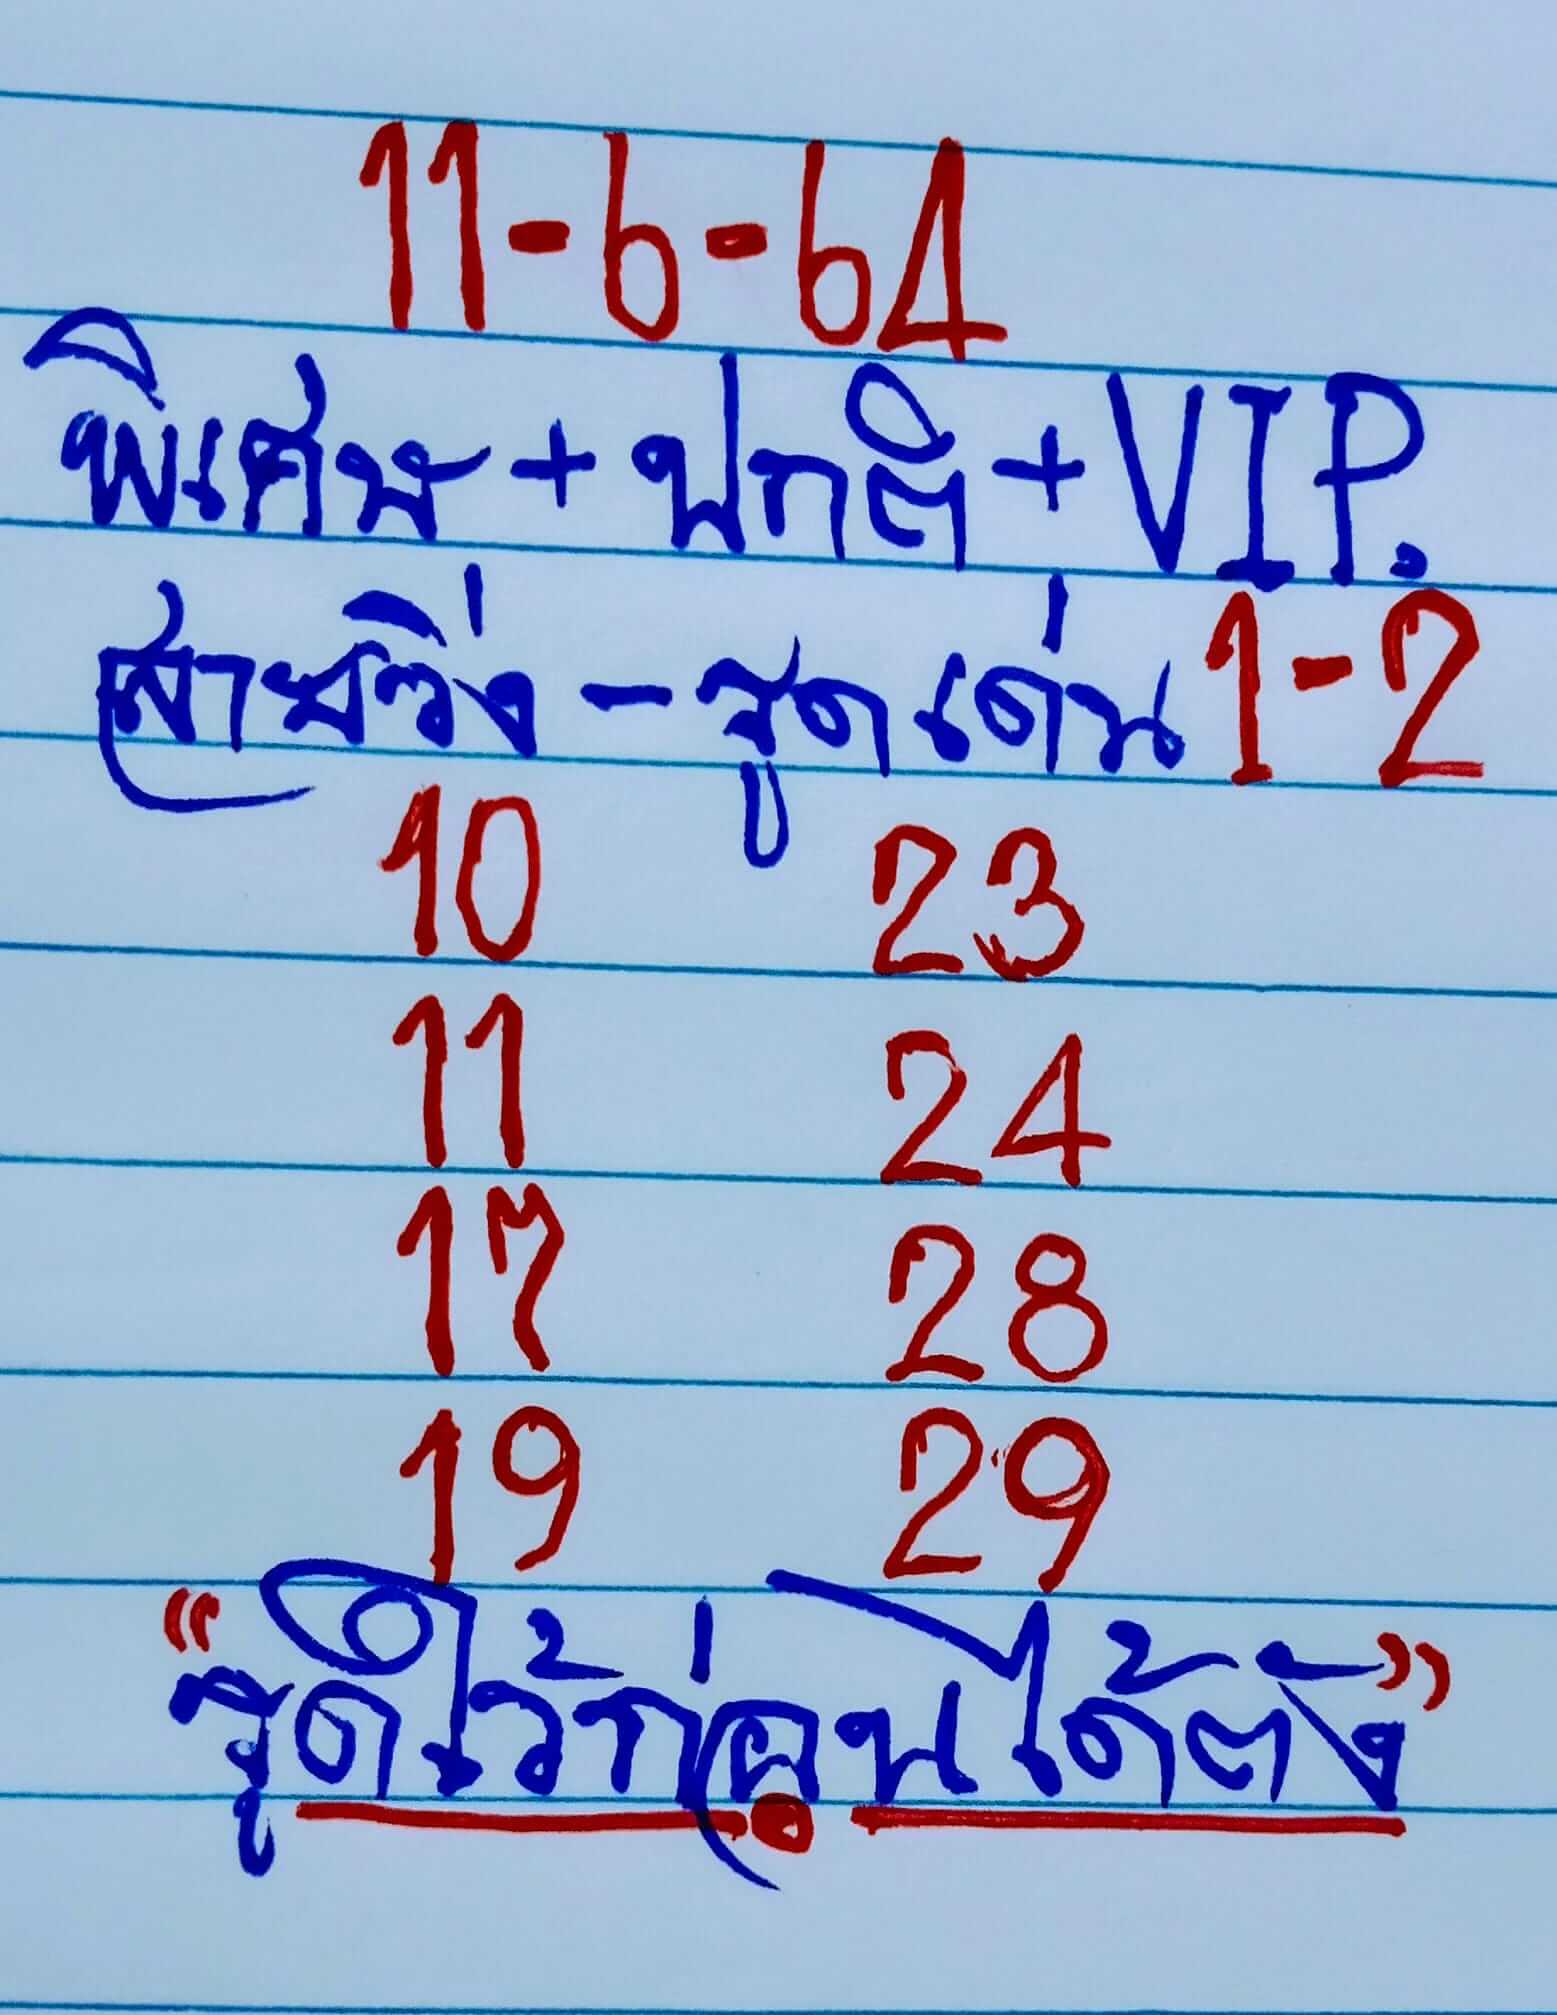 11-6-64
พิเศษ + ปกติ + VIP.
สายวิ่ง - รูดเด่น 1-2
10 23
11 24
17 28
19 29
"รูดไว้ก่อนได้ตัง"